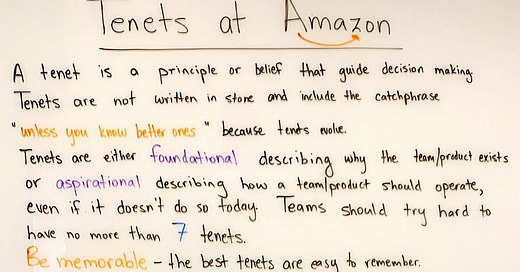 Tenets at Amazon
A tenet is a principle or belief that guide decision making.
Tenets are not written in stone and include the catchphrase
"unless you know better ones" because tenets evolve.
Tenets are either foundational describing why the team/product exists
or aspirational describing how a team/product should operate,
even if it doesn't do so today. Teams should try hard to
have no more than 7 tenets.
Be memorable – the best tenets are easy to remember.